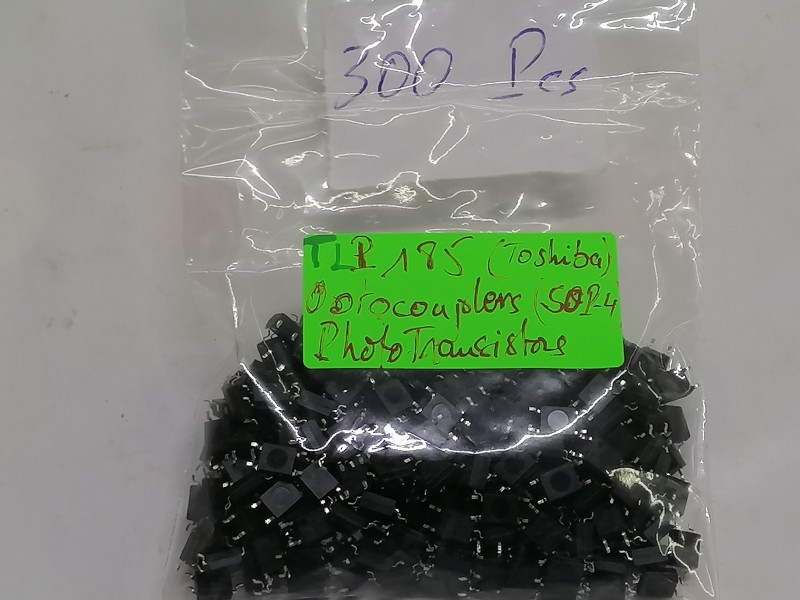 300 Pcs
TLP 185 (Toshiba)
Optocouplers (SOP-4
PhotoTransistors